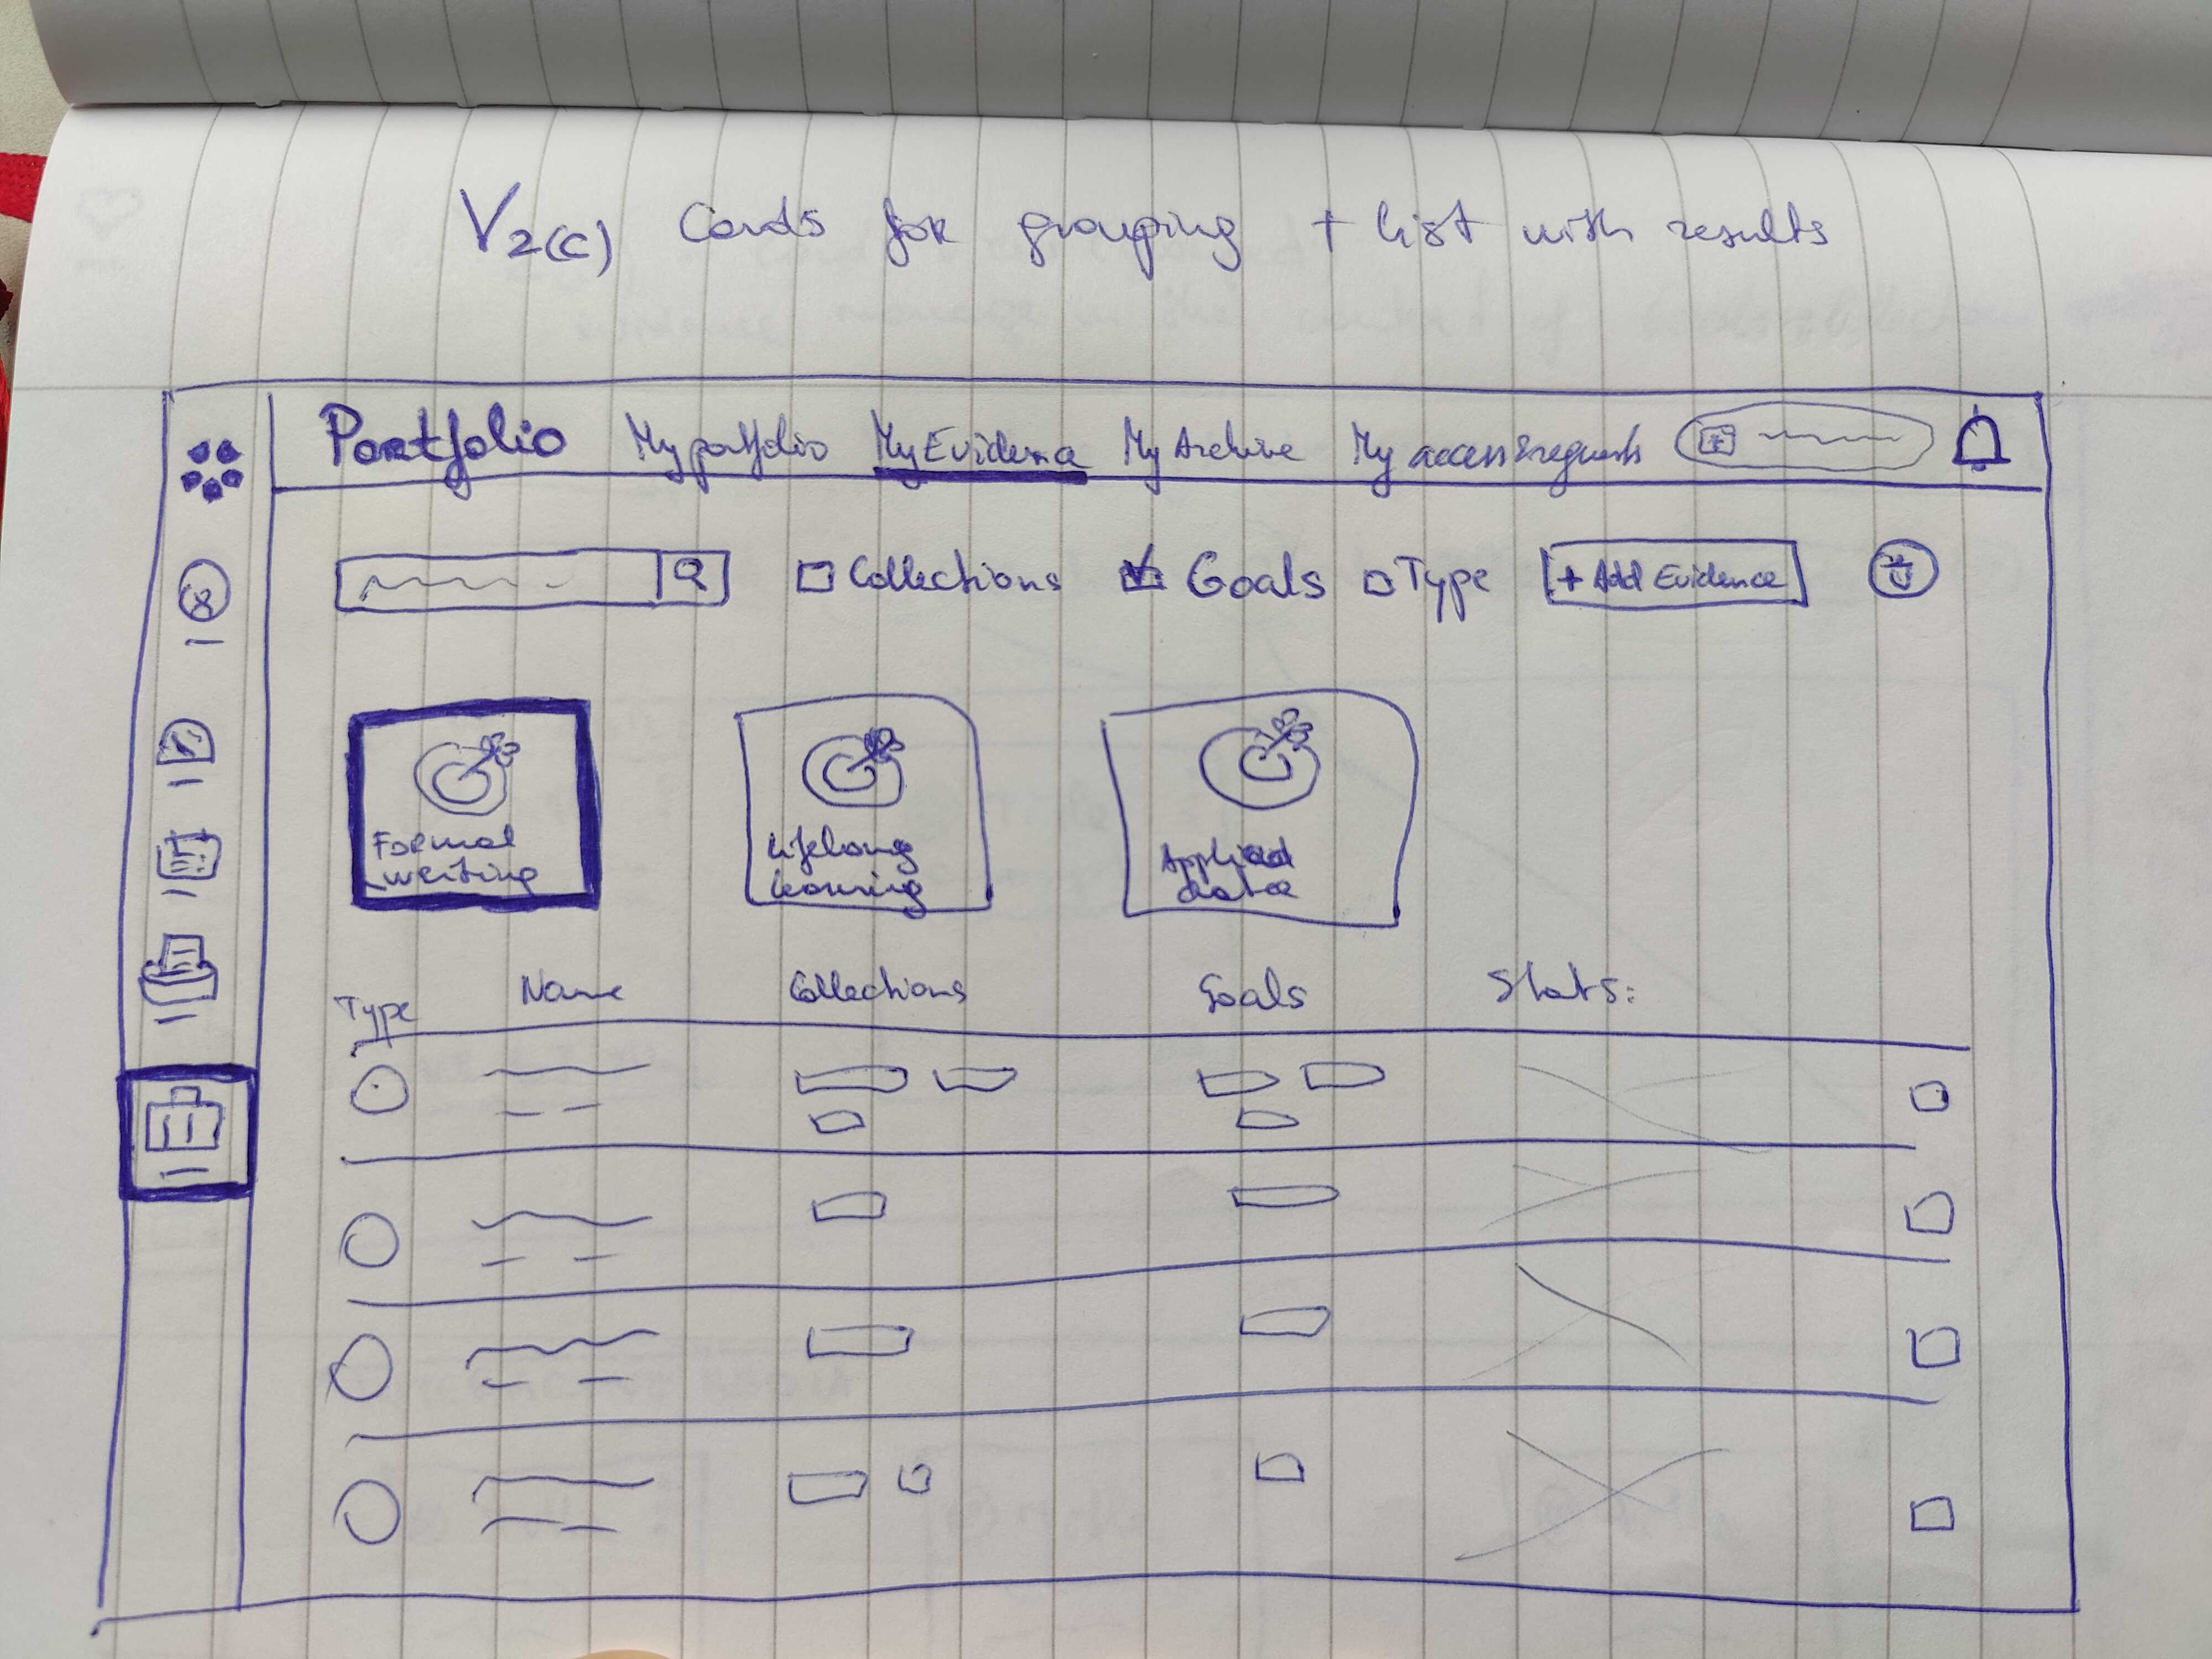 V2(c) Cards for grouping + list with results
Portfolio My portfolio My Evidence My Archive My access requests
Collections Goals Type + Add Evidence
Formal writing
Lifelong learning
Applied data
Type Name Collections Goals Stats: